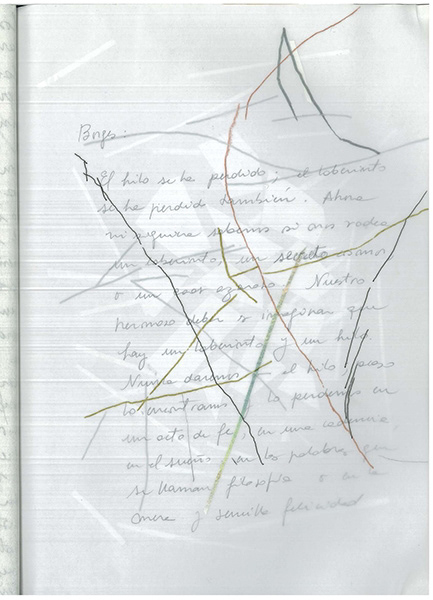 Borges:
El hilo se ha perdido; el laberinto
se ha perdido también. Ahora
ni siquiera sabemos si nos rodea
un laberinto, un secreto cosmos
o un caos azaroso. Nuestro
hermoso deber es imaginar que
hay un laberinto y un hilo.
Nunca daremos el hilo acaso
lo encontramos lo perdemos en
un acto de fe, en una cadencia,
en el sueño en las palabras que
se llaman filosofía o en la
mera y sencilla felicidad